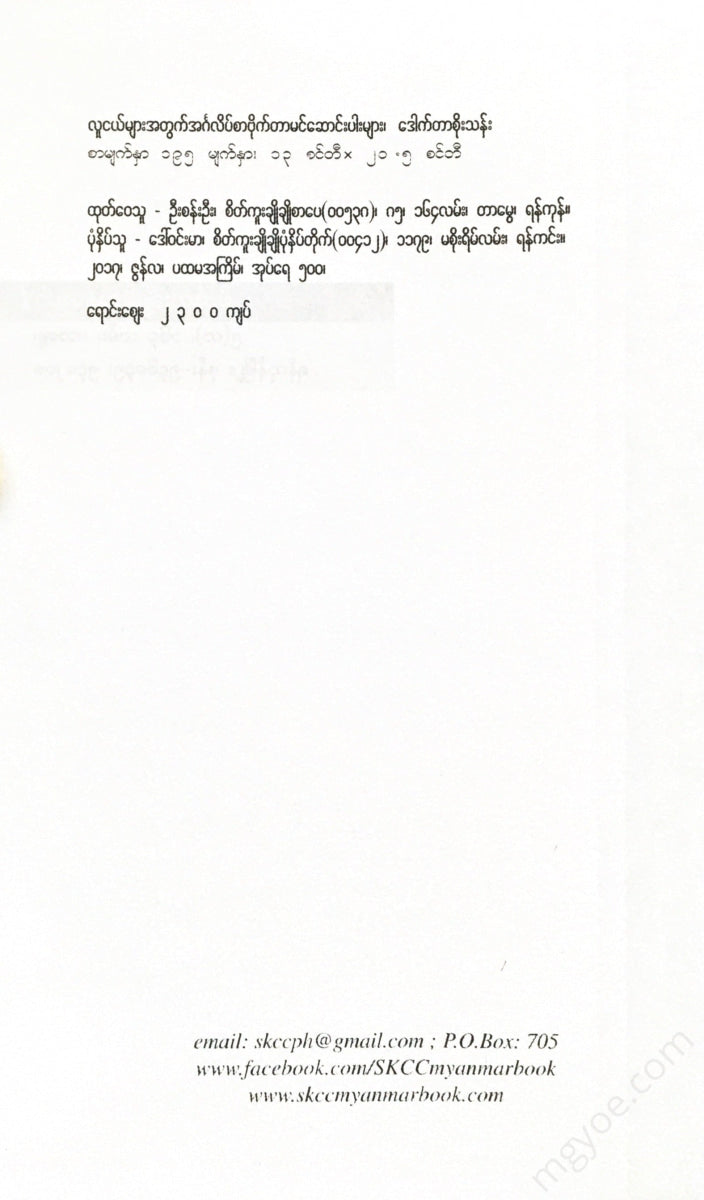 လူငယ်များအတွက်အင်္ဂလိပ်စာဝိုက်တာမင်ဆောင်းပါးများ၊ ဒေါက်တာစိုးသန်း
စာမျက်နှာ ၁၉၅ မျက်နှာ၊ ၁၃ စင်တီ× ၂၀.၅ စင်တီ
ထုတ်ဝေသူ - ဦးစန်းဦး၊ စိတ်ကူးချိုချိုစာပေ(၀၀၅၃၈)၊ ဂ၅၊ ၁၆၄လမ်း၊ တာမွေ၊ ရန်ကုန်။
ပုံနှိပ်သူ - ဒေါ်ဝင်းမာ၊ စိတ်ကူးချိုချိုပုံနှိပ်တိုက်(၀၀၄၁၂)၊ ၁၁၇၉၊ မစိုးရိမ်လမ်း၊ ရန်ကင်း။
၂၀၁၇၊ ဇွန်လ၊ ပထမအကြိမ်၊ အုပ်ရေ ၅၀၀၊
ရောင်းဈေး ၂ ၃ ၀ ၀ ကျပ်
email: skccph@gmail.com ; P.O.Box: 705
www.facebook.com/SKCCmyanmarbook
www.skccmyanmarbook.com
mgyoe.com